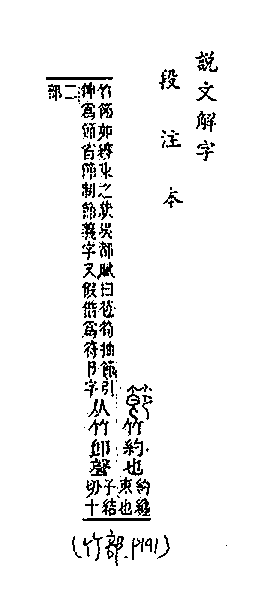 說文解字
段注本
節竹約也約纏
束也
竹節如纏束之狀吳都賦曰苞筍抽節引
伸爲節省節制節義字又假借爲符卪字从竹卽聲子結
切十
二部
(竹部, P191)